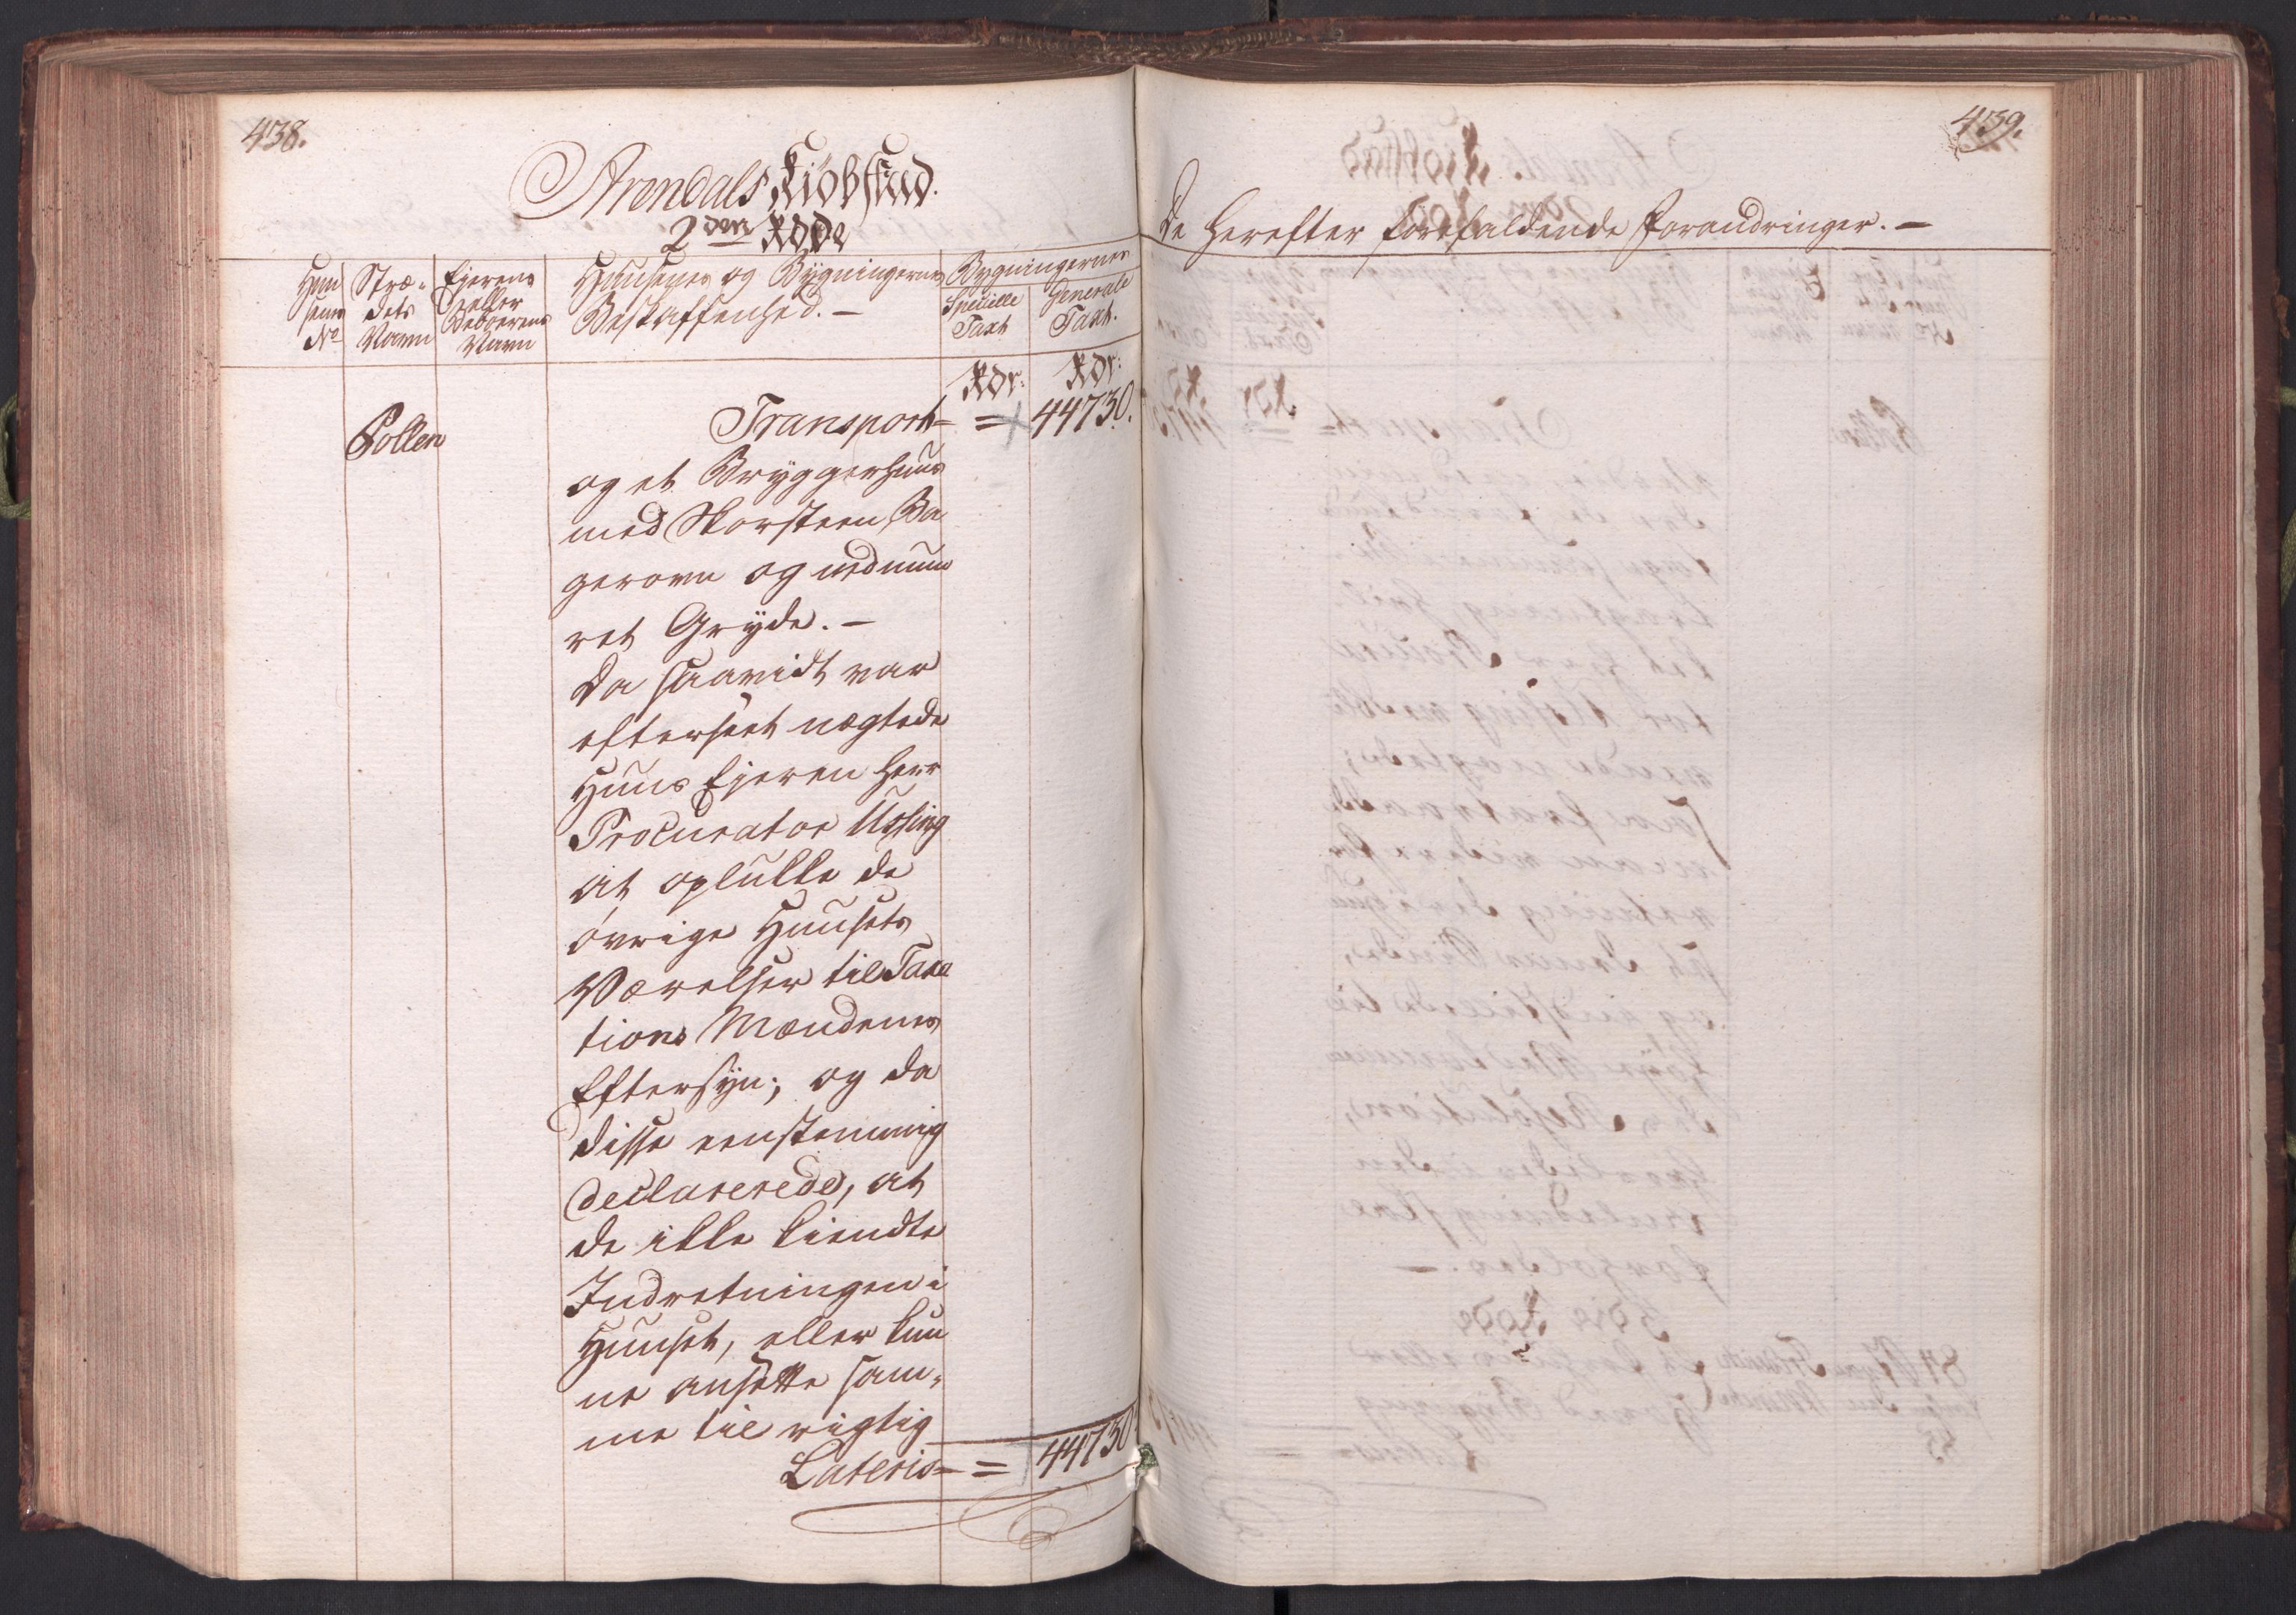 438.
Arendals Kiöbstad.
2den Rode
Huu
senes
No
Stræ-
dets
Navn
Ejerens
eller
Beboerens
Navn
Huusenes og Bÿgningernes
Beskaffenhed. —
Bygningernes
Specielle
Taxt
Generale
Taxt.
Rdr: Rdr:
Transport = = 44730.
Pollen
og et Brÿggerhuus
med Skorsteen, Ba
gerovn og indmuu
ret Grÿde. —
Da saavidt var
efterseet nægtede
Huus Ejeren Herr
Procurator Ussing
at oplukke de
övrige Huusets
Værelser til Taxa
tions Mændenes
Eftersÿn; og da
disse eenstemmig
declarerede, at
de ikke kiendte
Indretningen i
Huuset, eller kun
ne ansette sam-
me til rigtig
Lateris = = 44730.
439.
De herefter forefaldende Forandringer. —